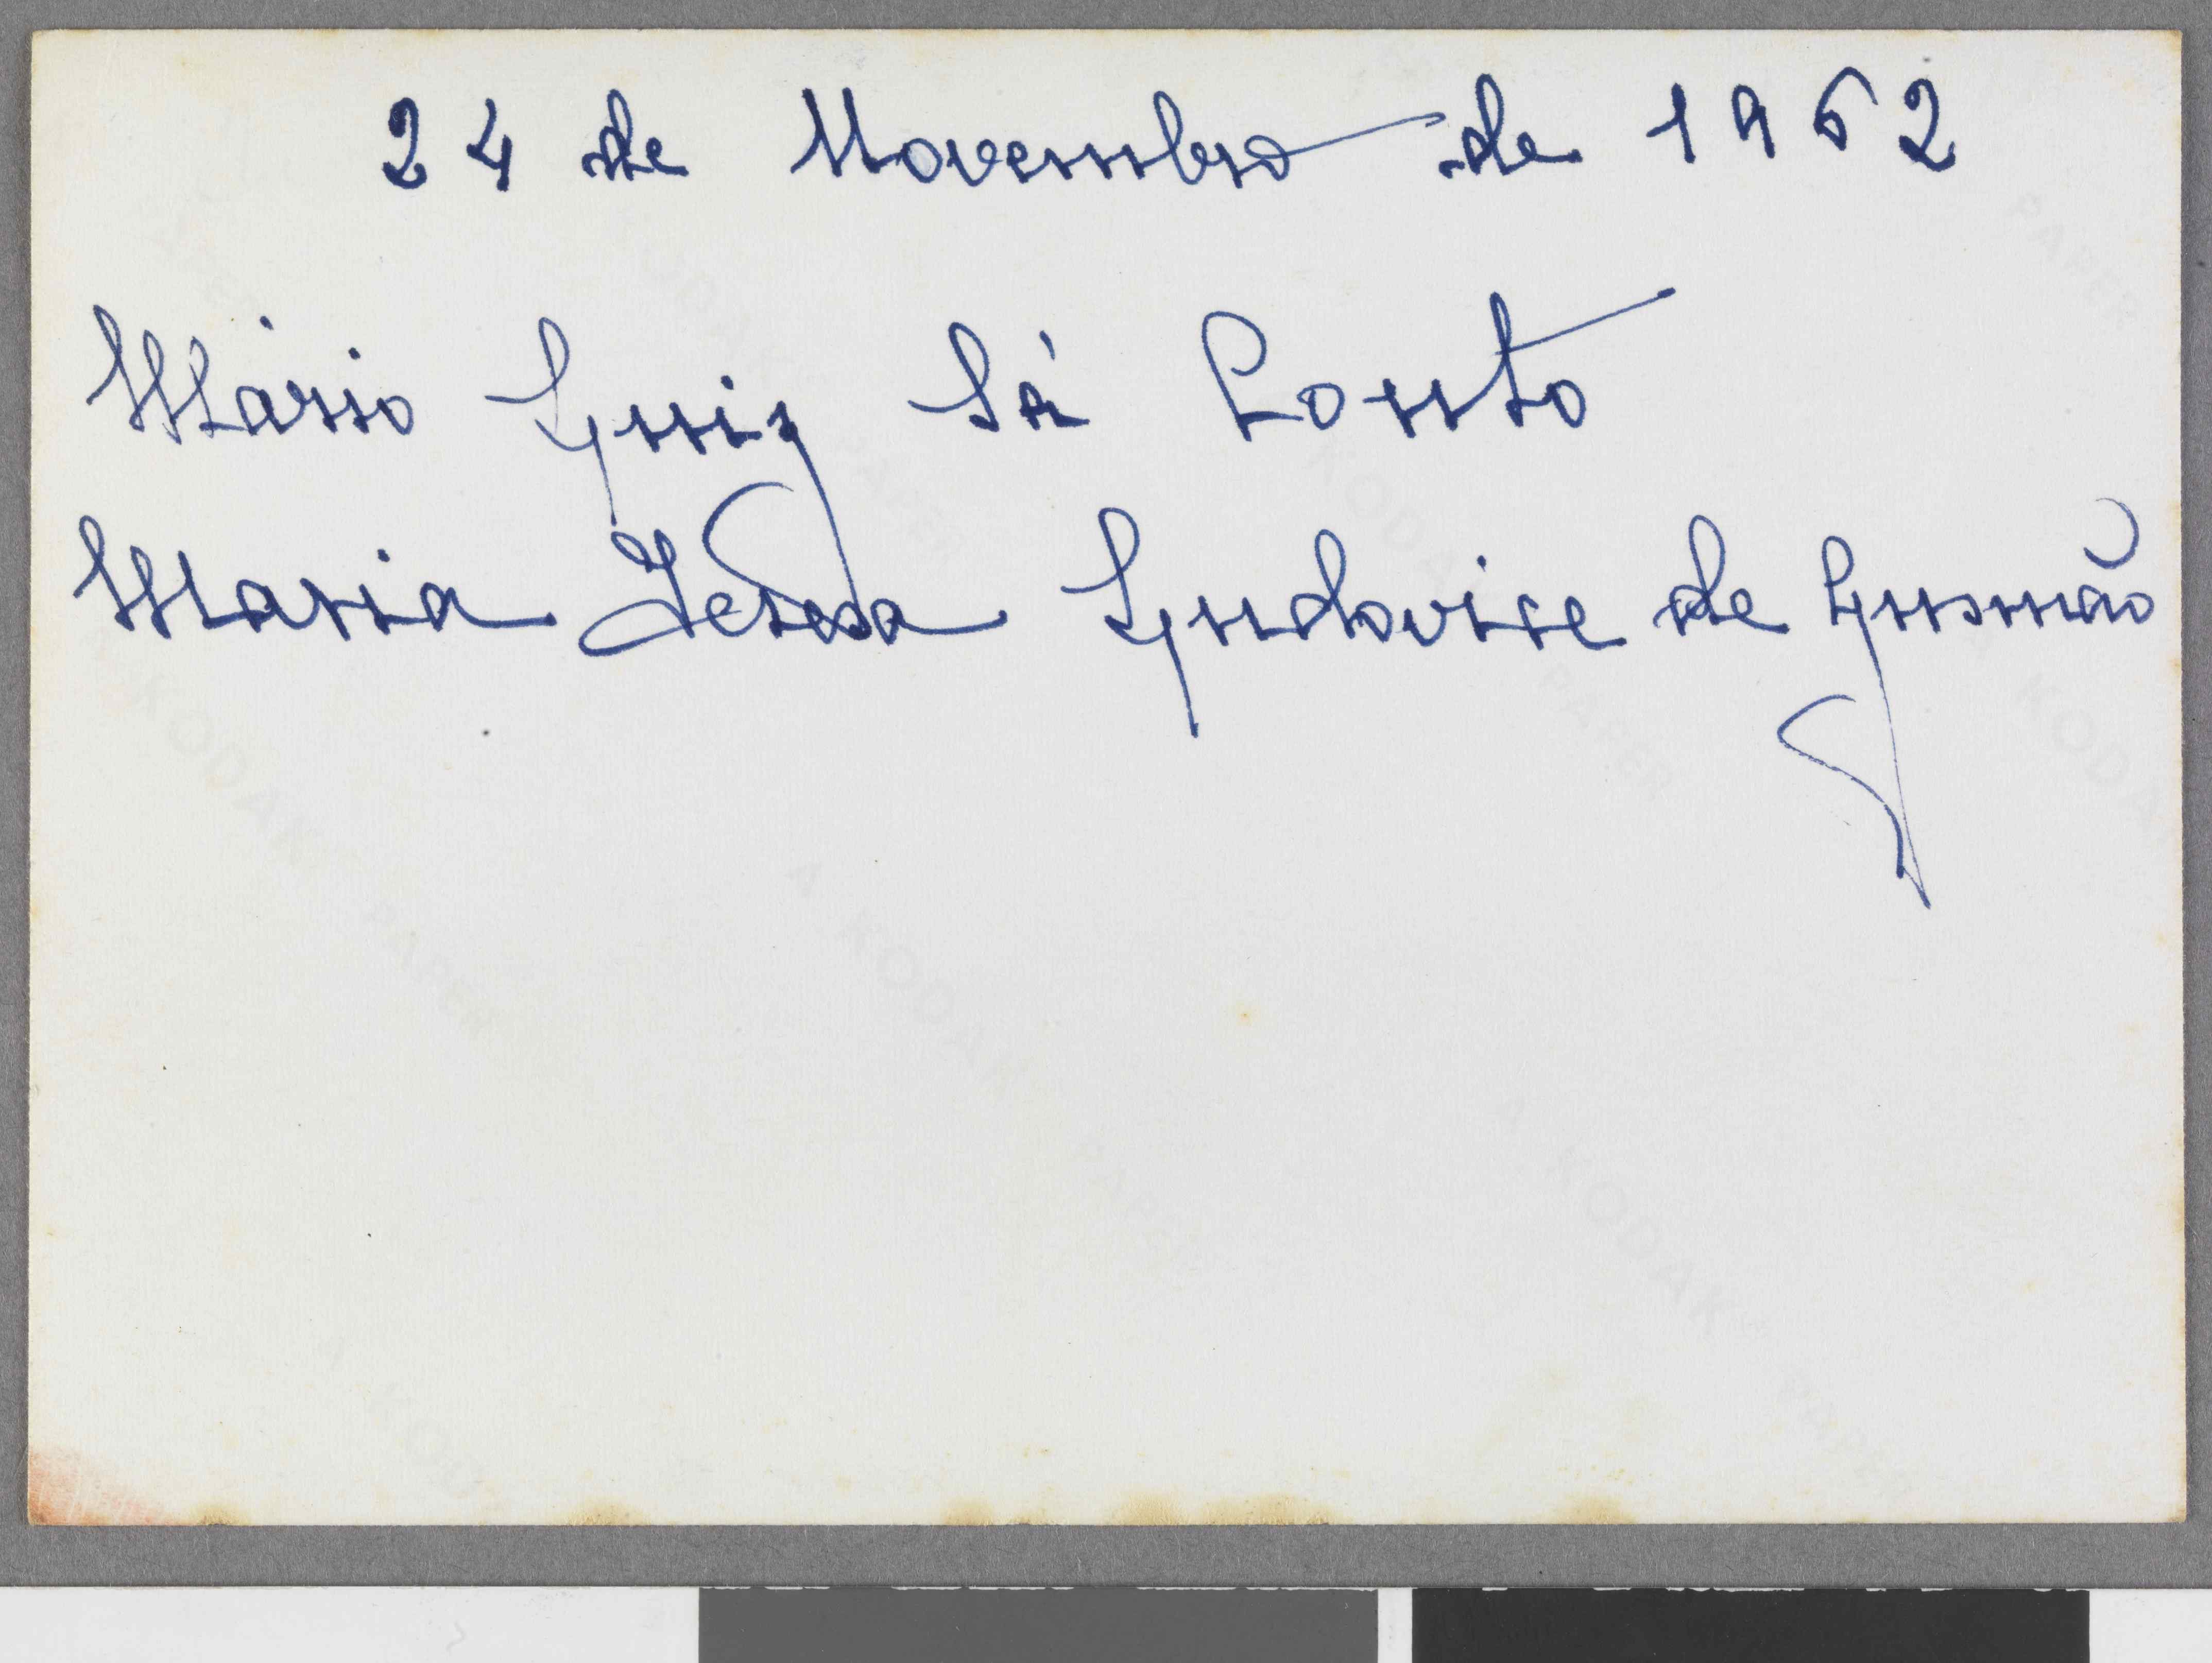 24 de Novembro de 1962
Mário Luiz Sá Couto
Maria Teresa Ludovice de Gusmão
A KODAK PAPER